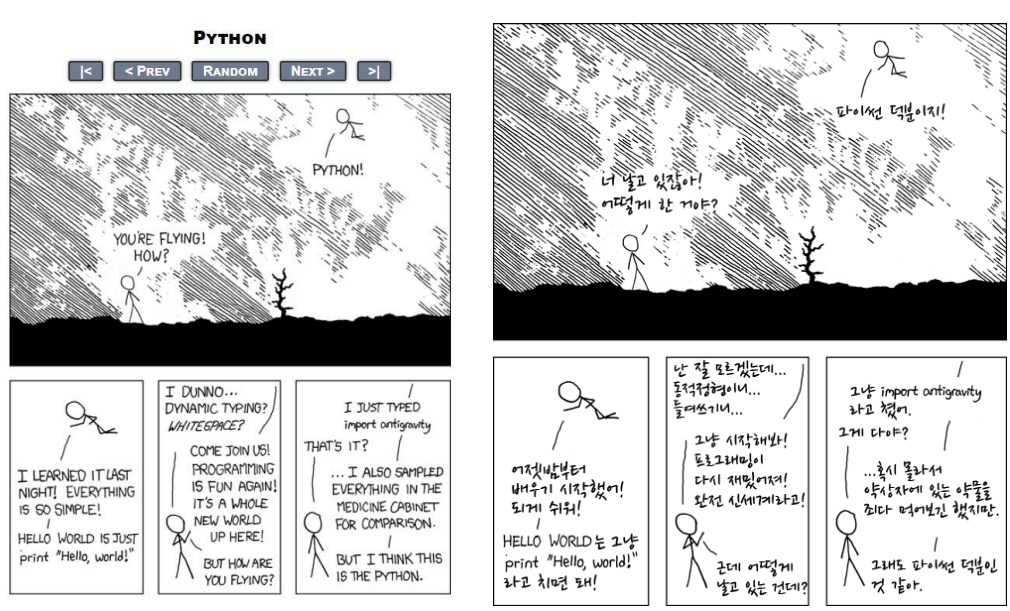 PYTHON
|<
< PREV
RANDOM
NEXT >
>|
PYTHON!
YOU'RE FLYING!
HOW?
I LEARNED IT LAST
NIGHT! EVERYTHING
IS SO SIMPLE!
HELLO WORLD IS JUST
print "Hello, world!"
I DUNNO...
DYNAMIC TYPING?
WHITESPACE?
COME JOIN US!
PROGRAMMING
IS FUN AGAIN!
IT'S A WHOLE
NEW WORLD
UP HERE!
BUT HOW ARE
YOU FLYING?
I JUST TYPED
import antigravity
THAT'S IT?
... I ALSO SAMPLED
EVERYTHING IN THE
MEDICINE CABINET
FOR COMPARISON.
BUT I THINK THIS
IS THE PYTHON.
파이썬 덕분이지!
너 날고 있잖아!
어떻게 한 거야?
어젯밤부터
배우기 시작했어!
되게 쉬워!
HELLO WORLD는 그냥
print "Hello, world!"
라고 치면 돼!
난 잘 모르겠는데...
동적정형이니...
들여쓰기니...
그냥 시작해봐!
프로그래밍이
다시 재밌어져!
완전 신세계라고!
근데 어떻게
날고 있는 건데?
그냥 import antigravity
라고 쳤어.
그게 다야?
...혹시 몰라서
약상자에 있는 약물을
죄다 먹어보긴 했지만.
그래도 파이썬 덕분인
것 같아.